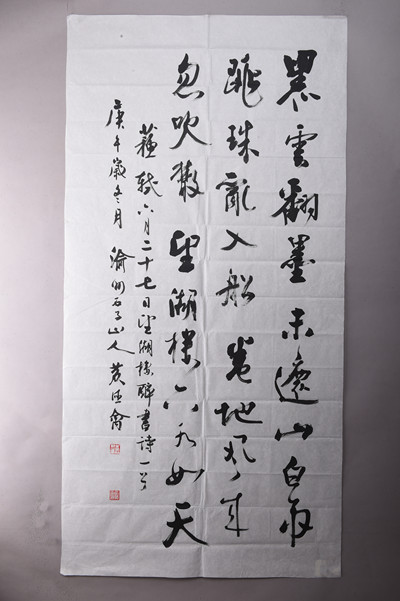 黑雲翻墨未遮山白雨
跳珠亂入船卷地風来
忽吹散望湖樓下水如天
蘇軾六月二十七日望湖樓醉書詩一首
庚午歲冬月 渝州石子山人